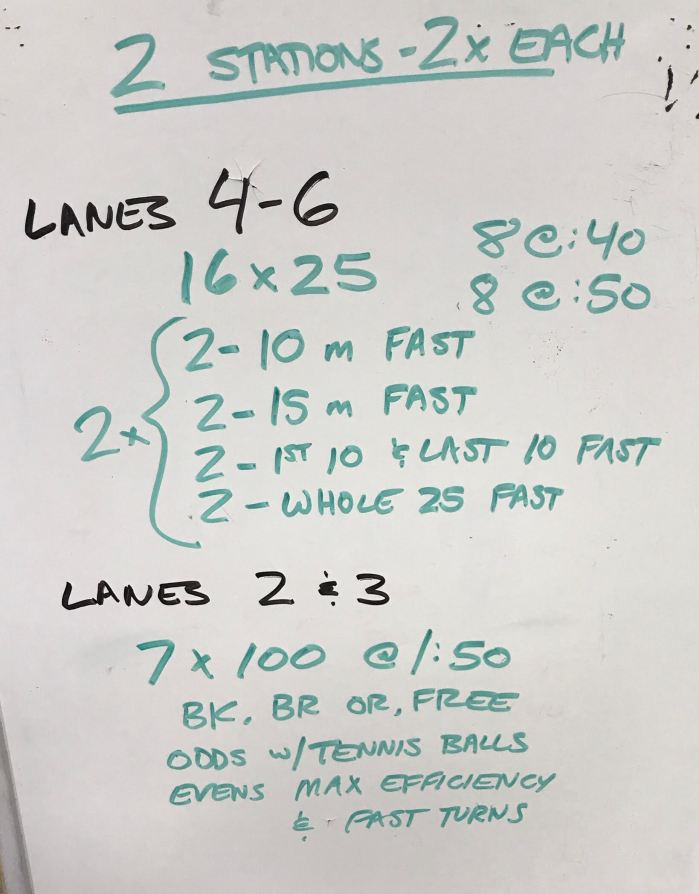 2 STATIONS - 2x EACH
LANES 4-6
16 x 25
8 @ :40
8 @ :50
2x
2 - 10 m FAST
2 - 15 m FAST
2 - 1ST 10 & LAST 10 FAST
2 - WHOLE 25 FAST
LANES 2 & 3
7 x 100 @ 1:50
BK, BR OR, FREE
ODDS w/TENNIS BALLS
EVENS MAX EFFICIENCY
& FAST TURNS